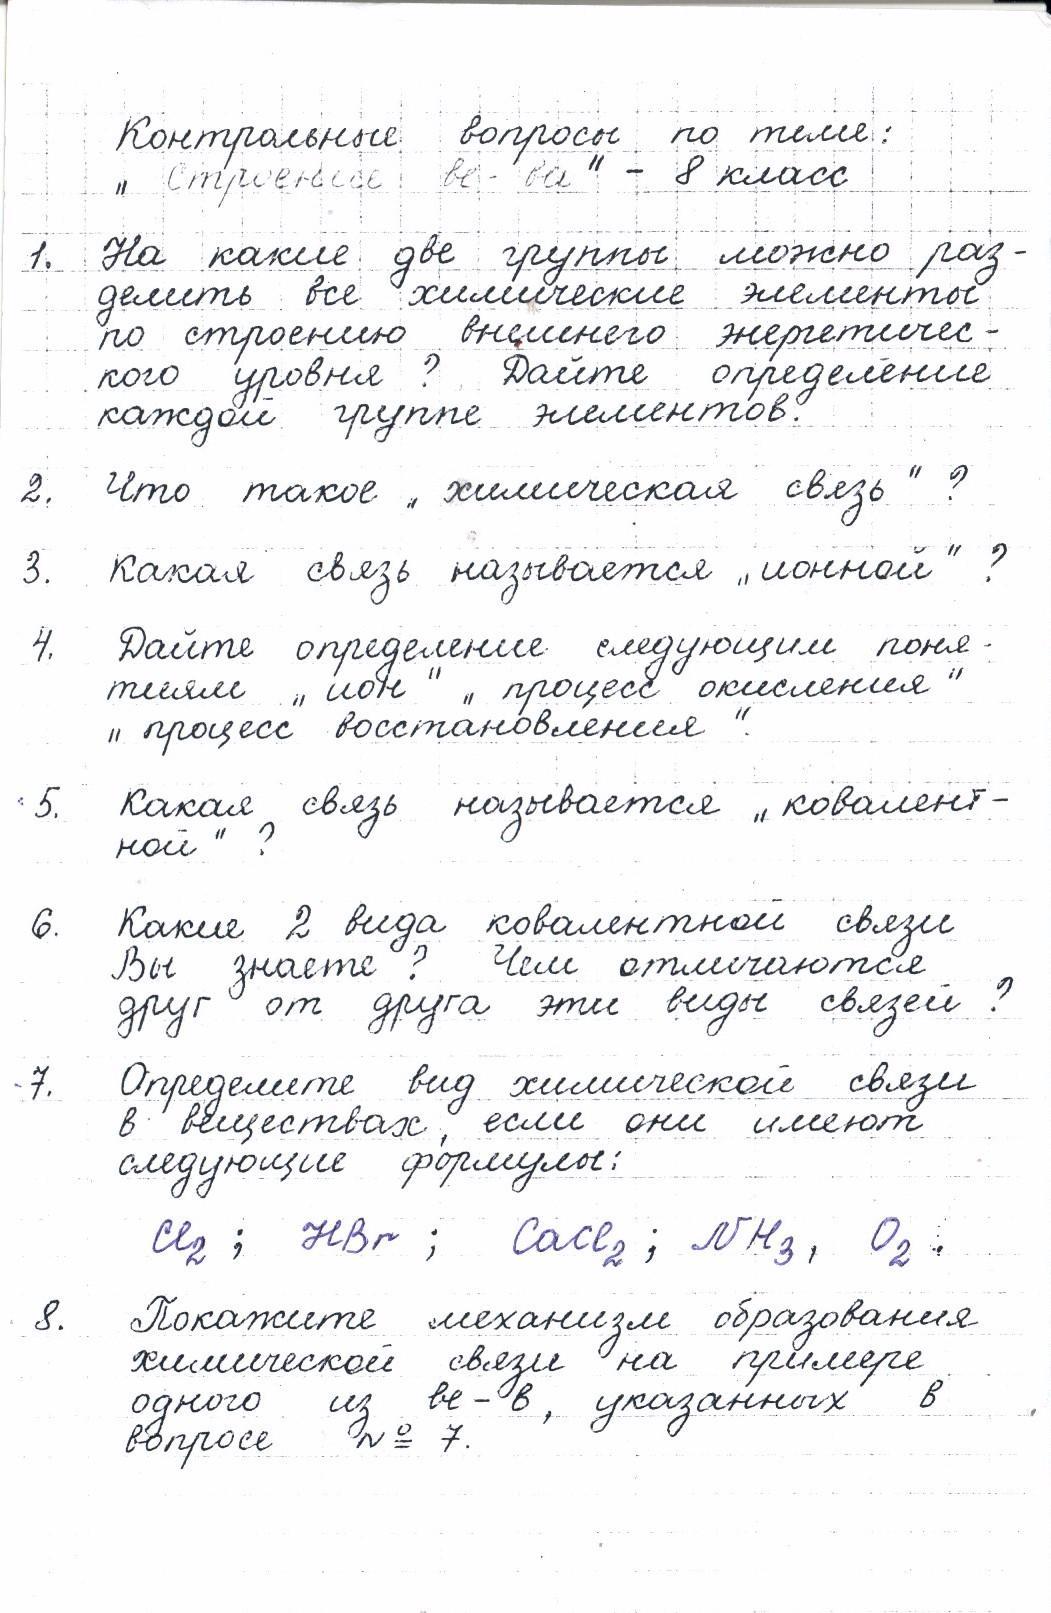 Контрольные вопросы по теме:
„ Строение ве-ва" - 8 класс
1. На какие две группы можно раз-
делить все химические элементы
по строению внешнего энергетичес-
кого уровня? Дайте определение
каждой группе элементов.
2. Что такое „ химическая связь" ?
3. Какая связь называется „ионной" ?
4. Дайте определение следующим поня-
тиям „ ион" „ процесс окисления"
„ процесс восстановления".
5. Какая связь называется „ ковалент-
ной" ?
6. Какие 2 вида ковалентной связи
Вы знаете? Чем отличаются
друг от друга эти виды связей ?
7. Определите вид химической связи
в веществах, если они имеют
следующие формулы:
Cl2 ; HBr ; CaCl2 ; NH3, O2.
8. Покажите механизм образования
химической связи на примере
одного из ве-в, указанных в
вопросе № 7.